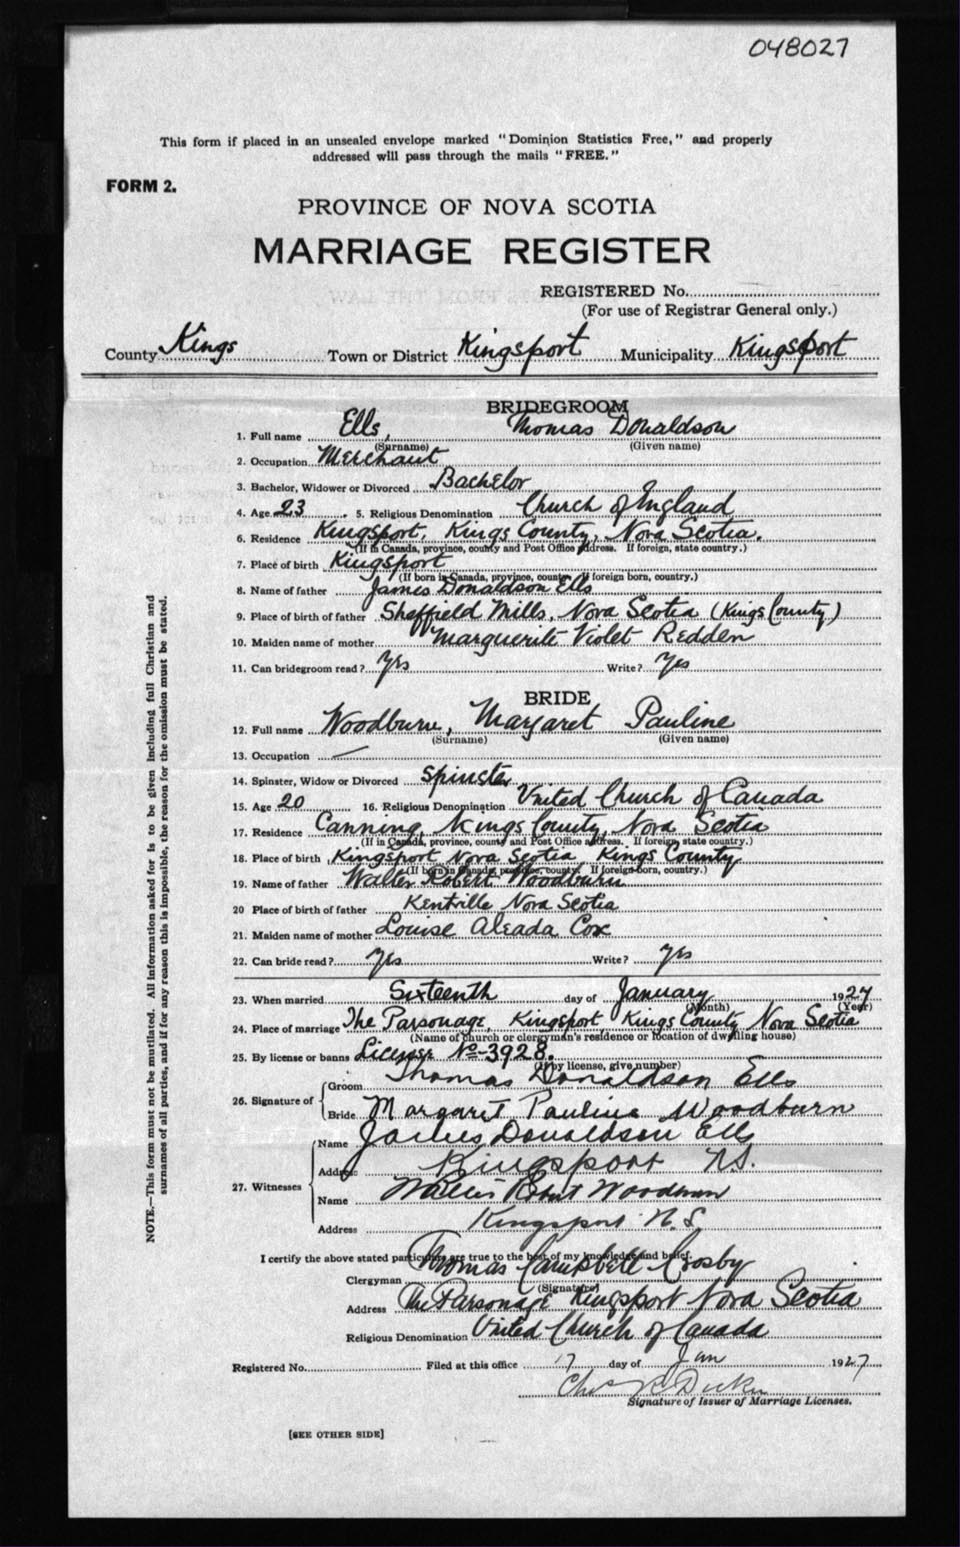 048027
This form if placed in an unsealed envelope marked "Dominion Statistics Free," and properly
addressed will pass through the mails "FREE."
FORM 2.
PROVINCE OF NOVA SCOTIA
MARRIAGE REGISTER
REGISTERED No.
(For use of Registrar General only.)
County Kings Town or District Kingsport Municipality Kingsport
BRIDEGROOM
1. Full name Ells, Thomas Donaldson
(Surname) (Given name)
2. Occupation Merchant
3. Bachelor, Widower or Divorced Bachelor
4. Age 23 5. Religious Denomination Church of England
6. Residence Kingsport, Kings County, Nova Scotia.
(If in Canada, province, county and Post Office address. If foreign, state country.)
7. Place of birth Kingsport
(If born in Canada, province, county. If foreign born, country.)
8. Name of father James Donaldson Ells
9. Place of birth of father Sheffield Mills, Nova Scotia (Kings County)
10. Maiden name of mother Marguerite Violet Redden
11. Can bridegroom read? Yes Write? Yes
BRIDE
12. Full name Woodburn, Margaret Pauline
(Surname) (Given name)
13. Occupation —
14. Spinster, Widow or Divorced Spinster
15. Age 20 16. Religious Denomination United Church of Canada
17. Residence Canning, Kings County, Nova Scotia
(If in Canada, province, county and Post Office address. If foreign, state country.)
18. Place of birth Kingsport Nova Scotia Kings County
(If born in Canada, province, county. If foreign born, country.)
19. Name of father Walter Robert Woodburn
20 Place of birth of father Kentville Nova Scotia
21. Maiden name of mother Louise Aleada Cox
22. Can bride read? Yes Write? Yes
23. When married Sixteenth day of January 1927
(Month) (Year)
24. Place of marriage The Parsonage, Kingsport Kings County Nova Scotia
(Name of church or clergyman's residence or location of dwelling house)
25. By license or banns License No-3928.
(If by license, give number)
26. Signature of
Groom Thomas Donaldson Ells
Bride Margaret Pauline Woodburn
27. Witnesses
Name James Donaldson Ells
Address Kingsport N.S.
Name Robert Woodburn
Address Kingsport N.S.
I certify the above stated particulars are true to the best of my knowledge and belief.
Clergyman Thomas Campbell Crosby
(Signature)
Address The Parsonage Kingsport Nova Scotia
Religious Denomination United Church of Canada
Registered No. Filed at this office 17 day of Jan 1927
Signature of Issuer of Marriage Licenses.
[SEE OTHER SIDE]
NOTE.—This form must not be mutilated. All information asked for is to be given including full Christian and
surnames of all parties, and if for any reason this is impossible, the reason for the omission must be stated.